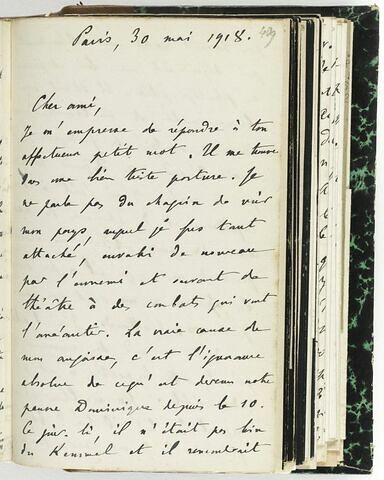 Paris, 30 mai 1918. 489
Cher ami,
Je m'empresse de répondre à ton
affectueux petit mot. Il me trouve
dans une bien triste posture. Je
ne parle pas du chagrin de voir
mon pays, auquel je suis tant
attaché, envahi de nouveau
par l'ennemi et servant de
théâtre à des combats qui vont
l'anéantir. La vraie cause de
mon angoisse, c'est l'ignorance
absolue de ce qu'est devenu notre
pauvre Dominique depuis le 10.
Ce jour-là, il n'était pas loin
du Kemmel et il rencontrait